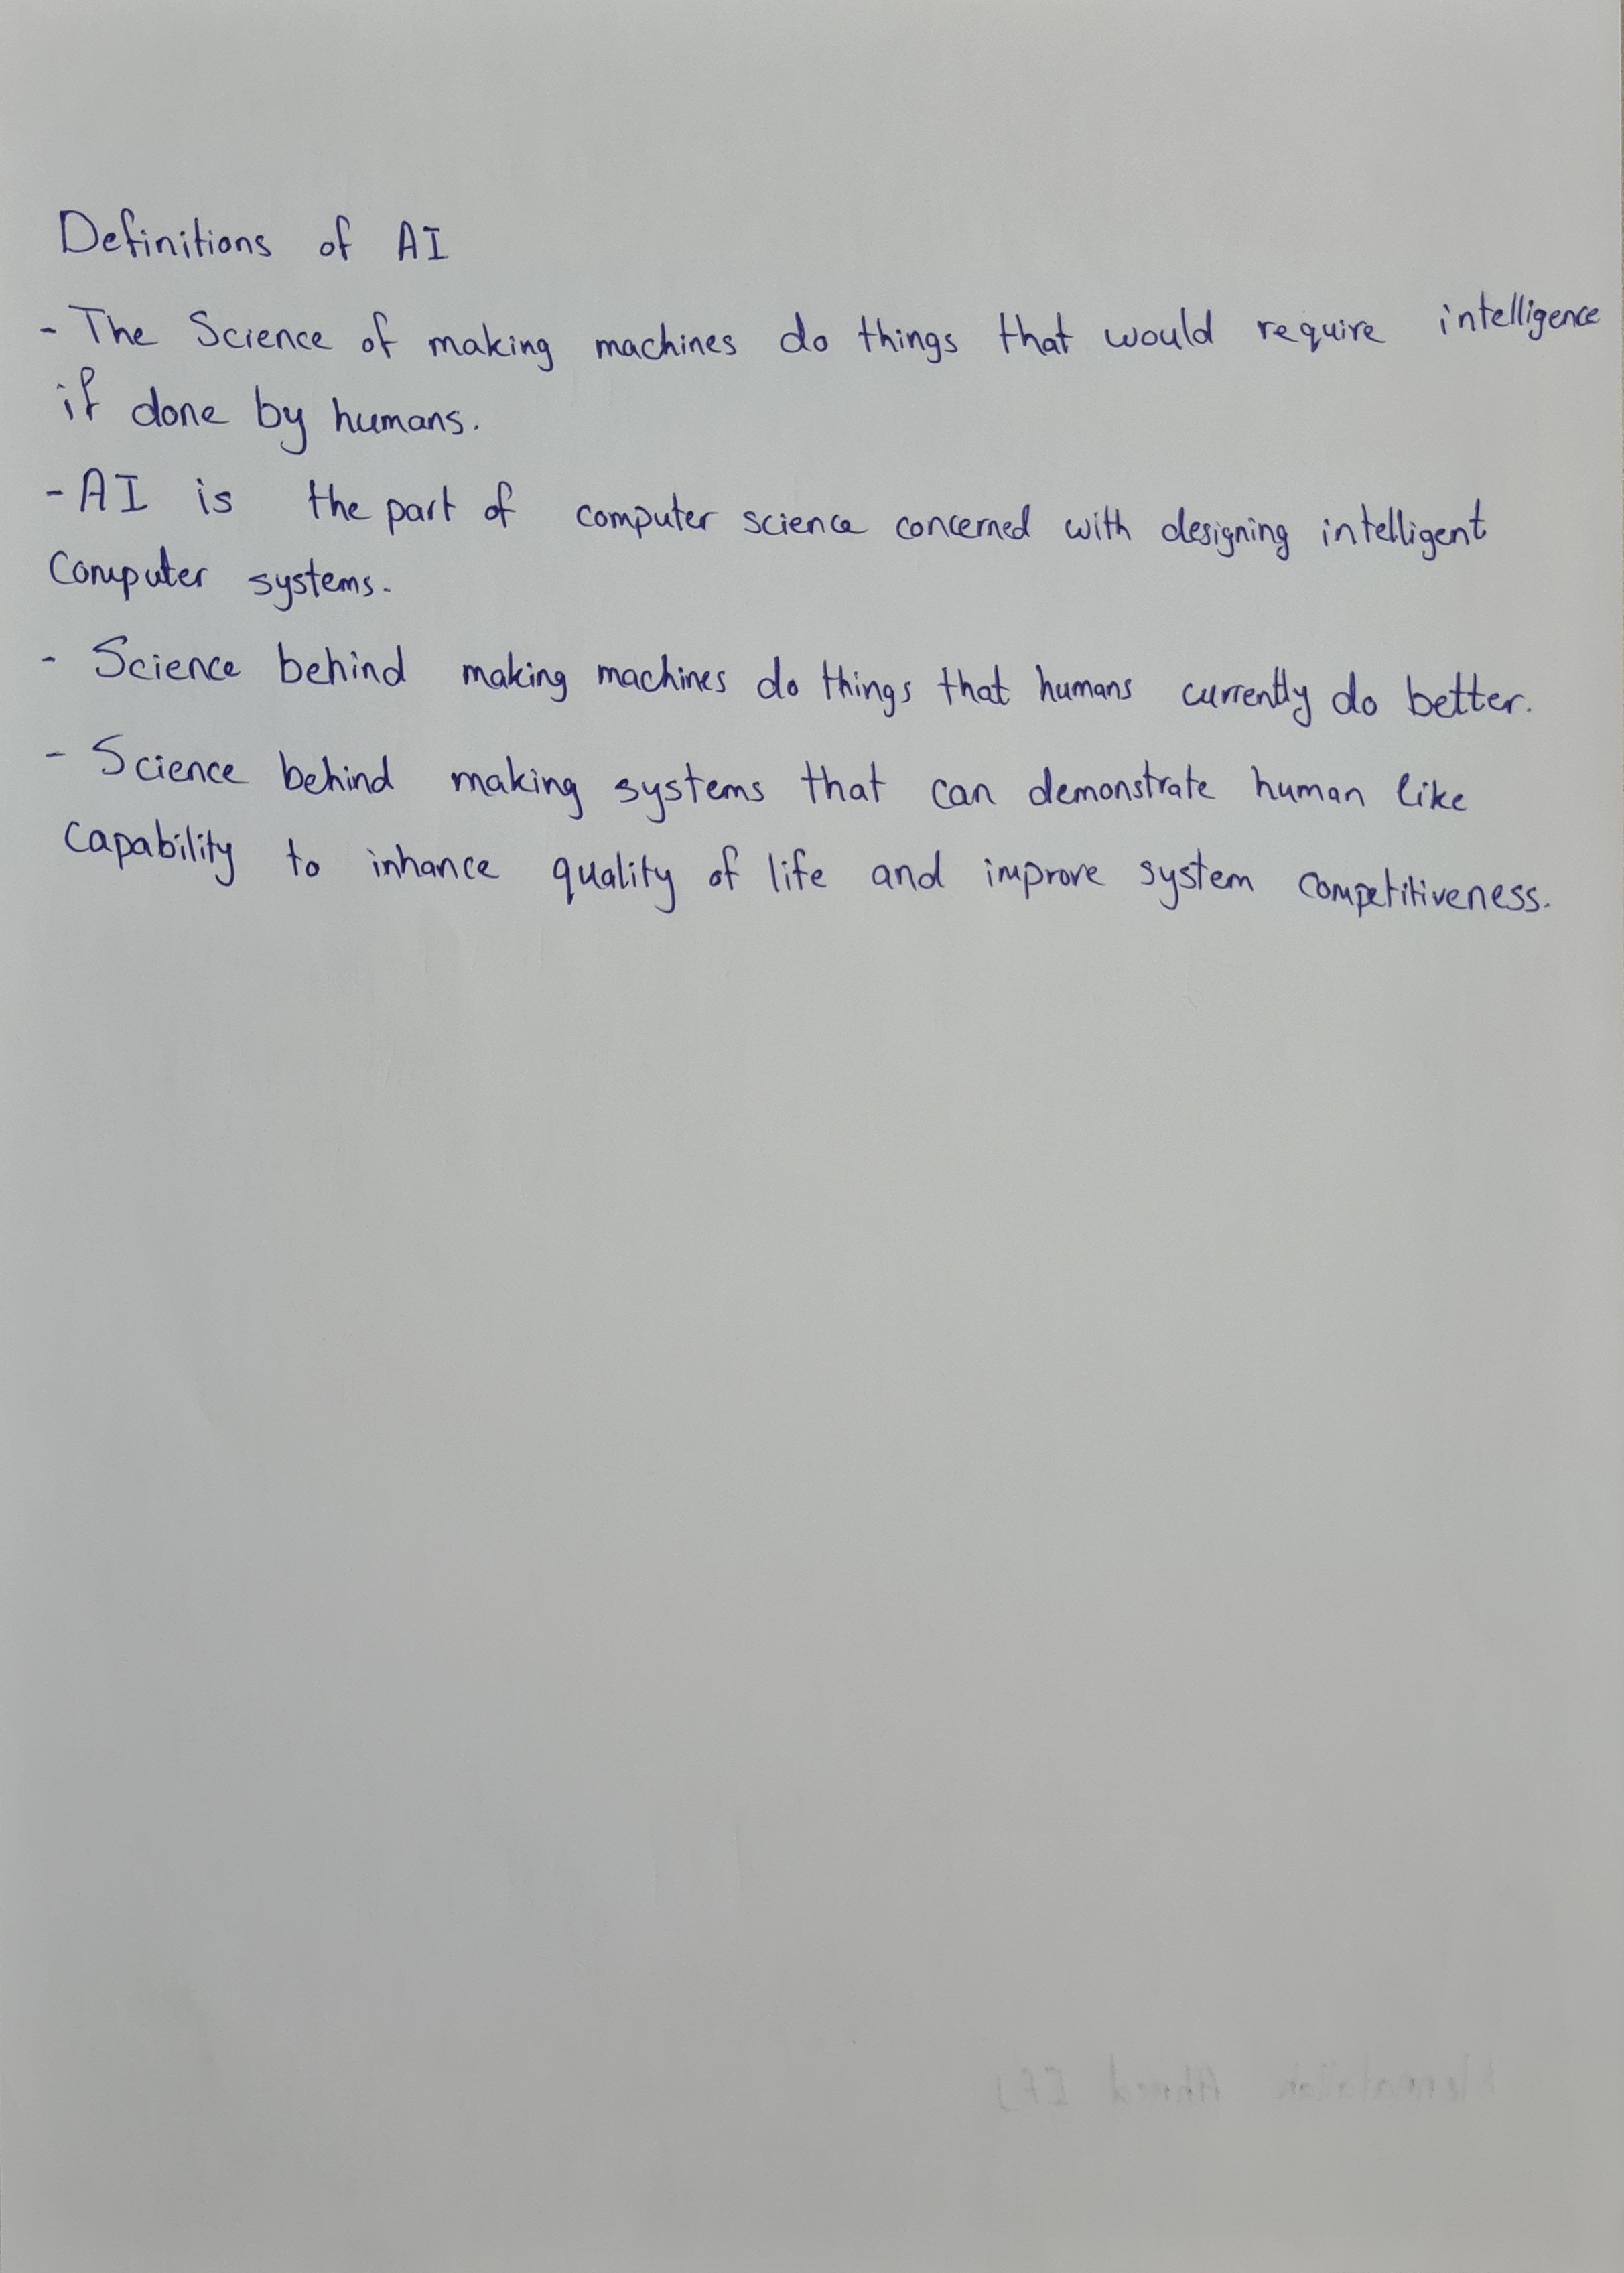 Definitions of AI
- The Science of making machines do things that would require intelligence
if done by humans.
- AI is the part of computer science concerned with designing intelligent
Computer systems.
- Science behind making machines do things that humans currently do better.
- Science behind making systems that can demonstrate human like
capability to inhance quality of life and improve system competitiveness.